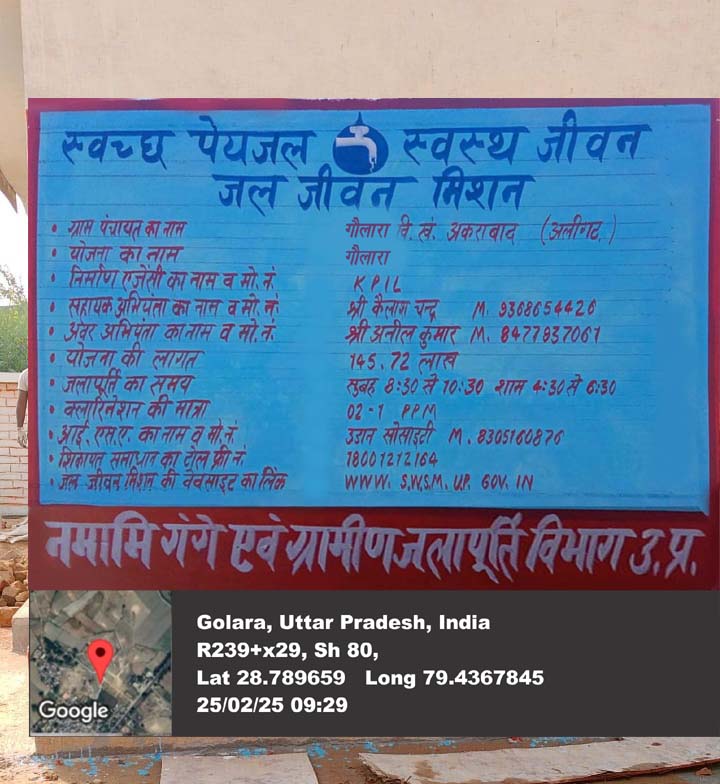 स्वच्छ पेयजल स्वस्थ जीवन
जल जीवन मिशन
• ग्राम पंचायत का नाम गौलारा वि. खं. अकराबाद (अलीगढ़)
• योजना का नाम गौलारा
• निर्माण एजेंसी का नाम व मो. नं. KPIL
• सहायक अभियंता का नाम व मो. नं. श्री कैलाश चन्द्र M. 9368654426
• अवर अभियंता का नाम व मो. नं. श्री अनील कुमार M. 8477937061
• योजना की लागत 145.72 लाख
• जलापूर्ति का समय सुबह 8:30 से 10:30 शाम 4:30 से 6:30
• क्लारिनेशन की मात्रा 02-1 PPM
• आई. एस. ए. का नाम व मो. नं. उडान सोसाइटी M. 8305160876
• शिकायत समाधान का टोल फ्री नं. 18001212164
• जल जीवन मिशन की वेबसाइट का लिंक WWW. S.W.S.M. U.P. GOV. IN
नमामि गंगे एवं ग्रामीण जलापूर्ति विभाग उ. प्र.
Golara, Uttar Pradesh, India
R239+x29, Sh 80,
Lat 28.789659 Long 79.4367845
25/02/25 09:29
Google